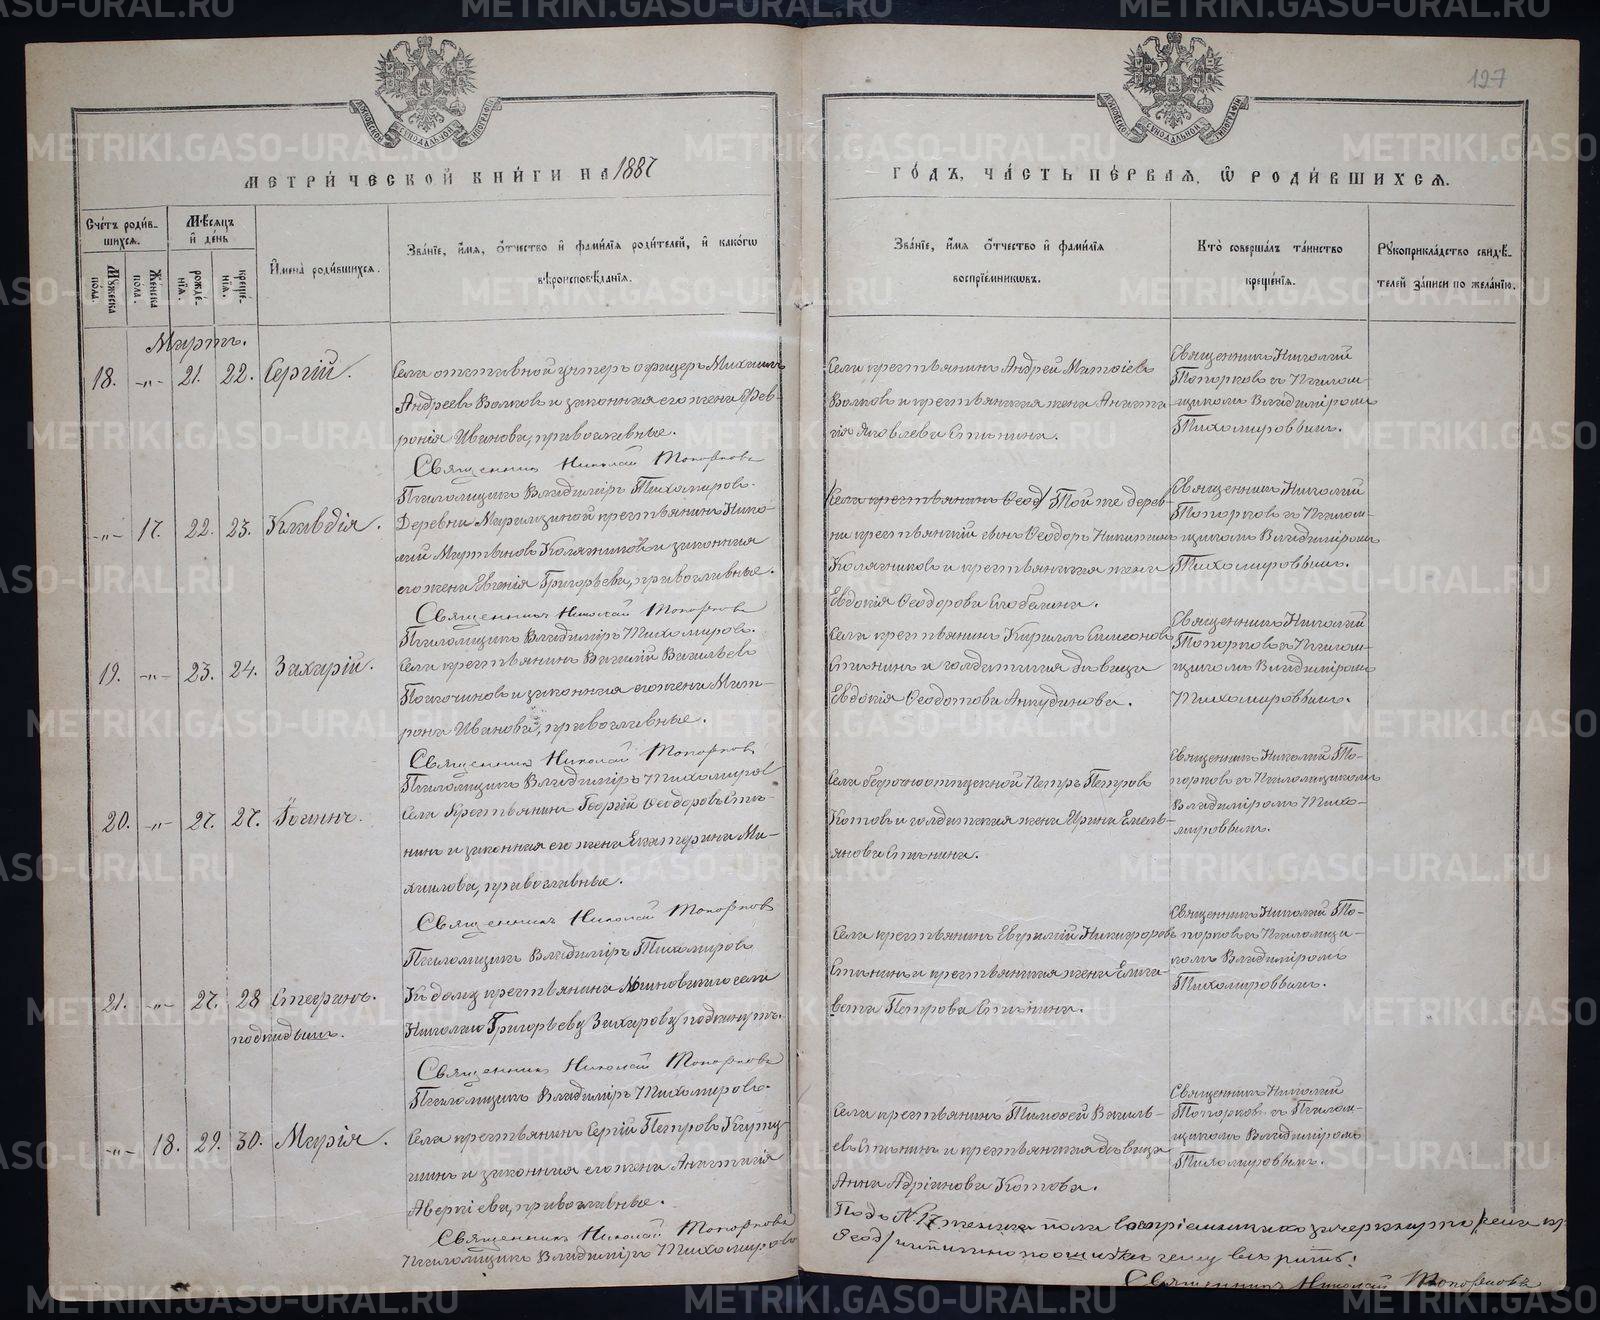 127
МЕТРИ́ЧЕСКОЙ КНИ́ГИ НА 1887
ГО́ДЪ, ЧА́СТЬ ПЕ́РВАЯ, Ѿ РОДИ́ВШИХСЯ.
Сче́тъ роди́в-
шихся.
Му́жеска по́ла.
Же́нска по́ла.
Мѣ́сяцъ и де́нь
рожде́нія.
креще́нія.
И́мена роди́вшихся.
Зва́ніе, и́мя, о́тчество и фами́лія роди́телей, и како́гѡ
вѣроисповѣ́данія.
Зва́ніе, и́мя о́тчество и фами́лія
воспріе́мниковъ.
Кто̀ соверша́лъ та́инство
креще́нія.
Рукоприкла́дство свидѣ́-
телей за́писи по жела́нію.
Мартъ.
18. -„- 21. 22. Сергій.
Села отставной унтеръ офицеръ Михаилъ
Андреевъ Волковъ и законная его жена Фев-
ронія Иванова, православные.
Священникъ Николай Топорковъ
Псаломщикъ Владиміръ Тихомировъ.
Села крестьянинъ Андрей Матѳіевъ
Волковъ и крестьянская жена Анаста-
сія Яковлева Стънина.
Священникъ Николай
Топорковъ съ Псалом-
щикомъ Владиміромъ
Тихомировымъ.
-„- 17. 22. 23. Клавдія.
Деревни крестьянинъ Нико-
лай Мартыновъ и законная
его жена Евгенія Григорьева, православные.
Священникъ Николай Топорковъ
Псаломщикъ Владиміръ Тихомировъ.
/Села крестьянинъ Ѳеод/ Той же дерев-
ни крестьянскій сынъ Ѳеодоръ Никитинъ
и крестьянская жена
Евдокія Ѳеодорова
Священникъ Николай
Топорковъ съ Псалом-
щикомъ Владиміромъ
Тихомировымъ.
19. -„- 23. 24. Захарій.
Села крестьянинъ Василій Васильевъ
и законная его жена Мат-
рона Иванова, православные.
Священникъ Николай Топорковъ
Псаломщикъ Владиміръ Тихомировъ
Села крестьянинъ Кириллъ Симеоновъ
Стънинъ и солдатская дѣвица
Евдокія Ѳеодотова Анкудинова.
Священникъ Николай
Топорковъ съ Псалом-
щикомъ Владиміромъ
Тихомировымъ.
20. -„- 27. 27. Іоаннъ.
Села Крестьянинъ Георгій Ѳеодоровъ Стъ-
нинъ и законная его жена Екатерина Ми-
хаилова, православные.
Священникъ Николай Топорковъ
Псаломщикъ Владиміръ Тихомировъ
Села безсрочноотпускной Петръ Петровъ
Котовъ и солдатская жена Ирина Емель-
янова Стънина.
Священникъ Николай То-
порковъ съ Псаломщикомъ
Владиміромъ Тихо-
мировымъ.
21. -„- 27. 28 Стефанъ.
подкидышъ.
Къ дому крестьянина села
Николаю Григорьеву Захарову подкинутъ.
Священникъ Николай Топорковъ
Псаломщикъ Владиміръ Тихомировъ.
Села крестьянинъ Евфимій Никифоровъ
Стънинъ и крестьянская жена Елиса-
вета Петрова Стънина.
Священникъ Николай То-
порковъ съ Псаломщи-
комъ Владиміромъ
Тихомировымъ.
-„- 18. 29. 30. Марія.
Села крестьянинъ Сергій Петровъ
и законная его жена Анастасія
Аверкіева, православные.
Священникъ Николай Топорковъ
Псаломщикъ Владиміръ Тихомировъ
Села крестьянинъ Тимоѳей Василь-
евъ Стънинъ и крестьянская дѣвица
Анна Адріанова Котова.
Священникъ Николай
Топорковъ съ Псалом-
щикомъ Владиміромъ
Тихомировымъ.
Подъ № 17 женска пола въ воспріемникахъ зачеркнуто /села кр
Ѳеод/ написано по ошибкѣ чему вѣрить:
Священникъ Николай Топорковъ
METRIKI.GASO-URAL.RU